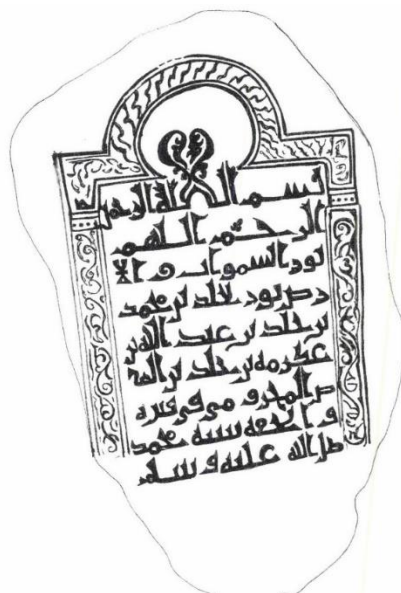 بسم الله الرحمن
الرحيم اللهم
نور السموات و الا
رض نور لخلد بن محمد
بن خلد بن عبد الله بن
عكرمه بن خلد بن العا
ص المخزومي في قبره
و الحقه بنبيه محمد
صلى الله عليه و سلم